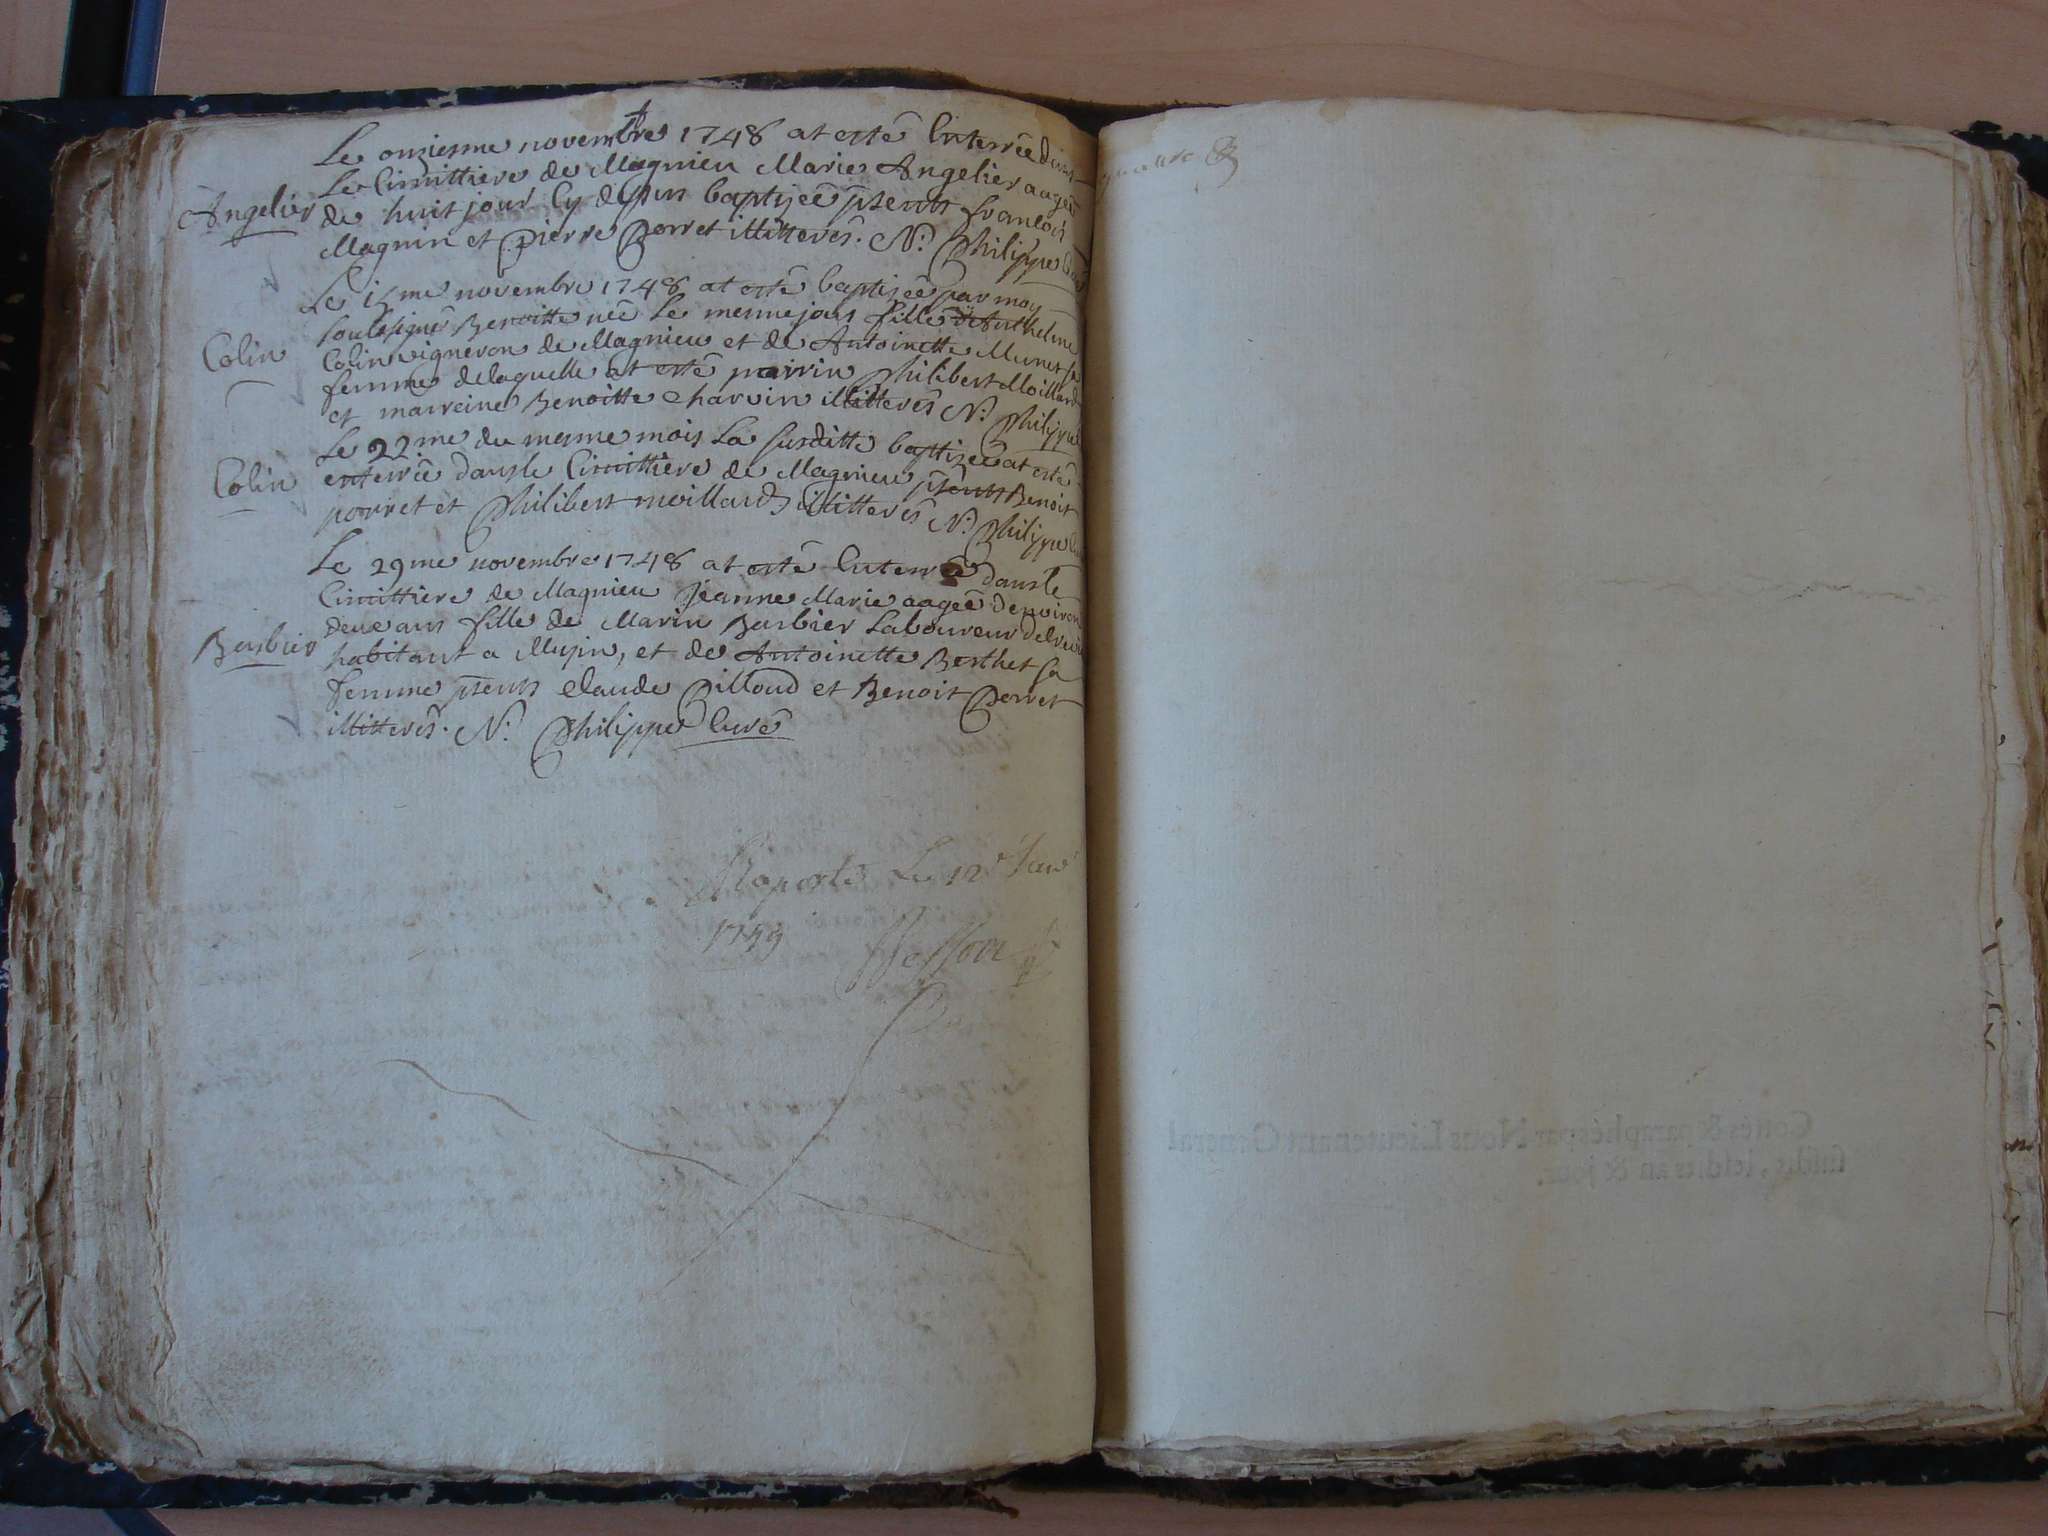 Le onziesme novembre 1748 at esté Enterrée dans
Le Cimittiere de Magnieu Marie Angelier aageé
Angelier
de huit jour Cy depuis baptizeé pñts francois
Magnin et Pierre Porret illitterés. N: Philippe Curé
Le 15me novembre 1748 at esté baptizeé par moy
soussigné Benoitte née Le mesme jour fille d'Anthelme
Colin
Colin vigneron de Magnieu et de Antoinette Munet sa
femme delaquelle at esté parrin Philibert Moillard
et marreine Benoitte Charvin illitterés N: Philippe
Le 22.me du mesme mois La susditte baptizeé at esté
Colin
enterrée dans le Cimittiere de Magnieu pñts Benoit
porret et Philibert moillard illitterés N: Philippe
Le 29me novembre 1748 at esté Enterreé dans le
Cimittiere de Magnieu Jeanne Marie aageé d'environ
deux ans fille de Marin Barbier Laboureur
Barbier
habitant a Musin, et de Antoinette Berthet sa
femme pñts Claude Billoud et Benoit Porret
illitterés. N: Philippe Curé
Raporté Le 12e Janv
1749
Cottés & paraphés par Nous Lieutenant General
susdit, lesdits an & jour.